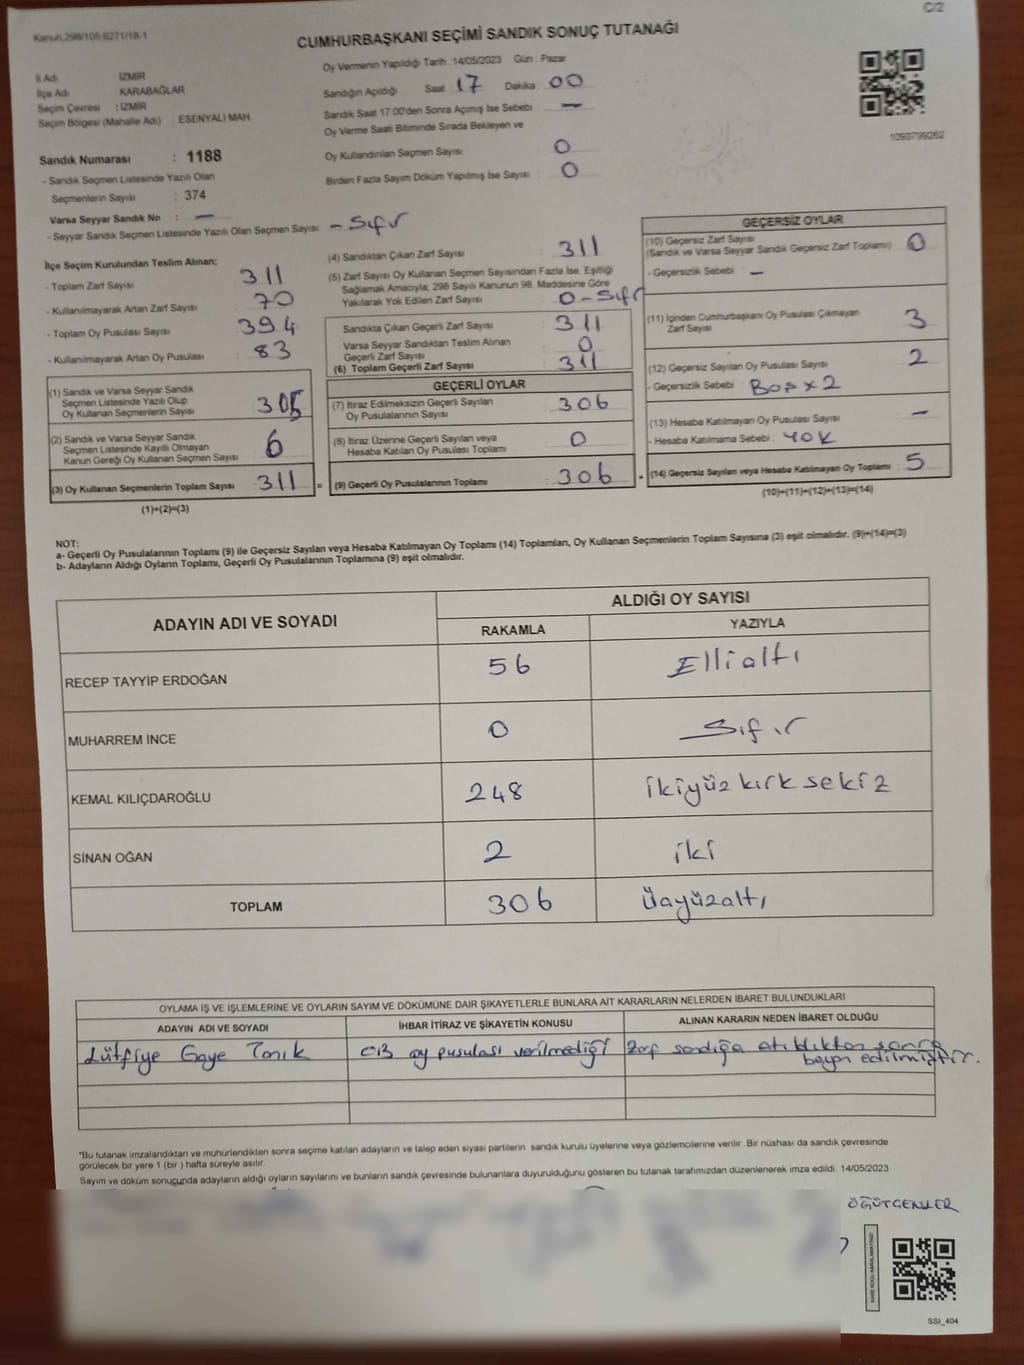 C/2
Kanun,298/105,6271/18-1
CUMHURBAŞKANI SEÇİMİ SANDIK SONUÇ TUTANAĞI
İl Adı : İZMİR
İlçe Adı : KARABAĞLAR
Seçim Çevresi : İZMİR
Seçim Bölgesi (Mahalle Adı) : ESENYALI MAH.
Oy Vermenin Yapıldığı Tarih : 14/05/2023 Gün : Pazar
Sandığın Açıldığı Saat : 17 Dakika : 00
Sandık Saat 17.00'den Sonra Açımış İse Sebebi : —
Oy Verme Saati Bitiminde Sırada Bekleyen ve
Oy Kullandırılan Seçmen Sayısı : 0
Birden Fazla Sayım Döküm Yapılmış İse Sayısı : 0
1093799262
Sandık Numarası : 1188
- Sandık Seçmen Listesinde Yazılı Olan
Seçmenlerin Sayısı : 374
Varsa Seyyar Sandık No : —
- Seyyar Sandık Seçmen Listesinde Yazılı Olan Seçmen Sayısı: - Sıfır
İlçe Seçim Kurulundan Teslim Alınan;
- Toplam Zarf Sayısı : 311
- Kullanılmayarak Artan Zarf Sayısı : 70
- Toplam Oy Pusulası Sayısı : 394
- Kullanılmayarak Artan Oy Pusulası : 83
(1) Sandık ve Varsa Seyyar Sandık
Seçmen Listesinde Yazılı Olup
Oy Kullanan Seçmenlerin Sayısı : 305
(2) Sandık ve Varsa Seyyar Sandık
Seçmen Listesinde Kayıtlı Olmayan
Kanun Gereği Oy Kullanan Seçmen Sayısı : 6
(3) Oy Kullanan Seçmenlerin Toplam Sayısı : 311
(1)+(2)=(3)
(4) Sandıktan Çıkan Zarf Sayısı : 311
(5) Zarf Sayısı Oy Kullanan Seçmen Sayısından Fazla İse, Eşitliği
Sağlamak Amacıyla; 298 Sayılı Kanunun 98. Maddesine Göre
Yakılarak Yok Edilen Zarf Sayısı : 0 - Sıfır
Sandıkta Çıkan Geçerli Zarf Sayısı : 311
Varsa Seyyar Sandıktan Teslim Alınan
Geçerli Zarf Sayısı : 0
(6) Toplam Geçerli Zarf Sayısı : 311
GEÇERLİ OYLAR
(7) İtiraz Edilmeksizin Geçerli Sayılan
Oy Pusulalarının Sayısı : 306
(8) İtiraz Üzerine Geçerli Sayılan veya
Hesaba Katılan Oy Pusulası Toplamı : 0
= (9) Geçerli Oy Pusulalarının Toplamı : 306
GEÇERSİZ OYLAR
(10) Geçersiz Zarf Sayısı
(Sandık ve Varsa Seyyar Sandık Geçersiz Zarf Toplamı) : 0
- Geçersizlik Sebebi : —
(11) İçinden Cumhurbaşkanı Oy Pusulası Çıkmayan
Zarf Sayısı : 3
(12) Geçersiz Sayılan Oy Pusulası Sayısı : 2
- Geçersizlik Sebebi : Boş x 2
(13) Hesaba Katılmayan Oy Pusulası Sayısı : —
- Hesaba Katılmama Sebebi : YOK
+ (14) Geçersiz Sayılan veya Hesaba Katılmayan Oy Toplamı : 5
(10)+(11)+(12)+(13)=(14)
NOT:
a- Geçerli Oy Pusulalarının Toplamı (9) ile Geçersiz Sayılan veya Hesaba Katılmayan Oy Toplamı (14) Toplamları, Oy Kullanan Seçmenlerin Toplam Sayısına (3) eşit olmalıdır. (9)+(14)=(3)
b- Adayların Aldığı Oyların Toplamı, Geçerli Oy Pusulalarının Toplamına (9) eşit olmalıdır.
ADAYIN ADI VE SOYADI
ALDIĞI OY SAYISI
RAKAMLA YAZIYLA
RECEP TAYYİP ERDOĞAN 56 Ellialtı
MUHARREM İNCE 0 Sıfır
KEMAL KILIÇDAROĞLU 248 ikiyüz kırk sekiz
SİNAN OĞAN 2 iki
TOPLAM 306 üçyüzaltı
OYLAMA İŞ VE İŞLEMLERİNE VE OYLARIN SAYIM VE DÖKÜMÜNE DAİR ŞİKAYETLERLE BUNLARA AİT KARARLARIN NELERDEN İBARET BULUNDUKLARI
ADAYIN ADI VE SOYADI İHBAR İTİRAZ VE ŞİKAYETİN KONUSU ALINAN KARARIN NEDEN İBARET OLDUĞU
Lütfiye Gaye Tanık CB oy pusulası verilmediği Zarf sandığa atıldıktan sonra
beyan edilmiştir.
*Bu tutanak imzalandıktan ve mühürlendikten sonra seçime katılan adayların ve talep eden siyasi partilerin sandık kurulu üyelerine veya gözlemcilerine verilir. Bir nüshası da sandık çevresinde
görülecek bir yere 1 (bir ) hafta süreyle asılır.
Sayım ve döküm sonucunda adayların aldığı oyların sayılarını ve bunların sandık çevresinde bulunanlara duyurulduğunu gösteren bu tutanak tarafımızdan düzenlenerek imza edildi. 14/05/2023
ÖĞÜTGENLER
SSI_404